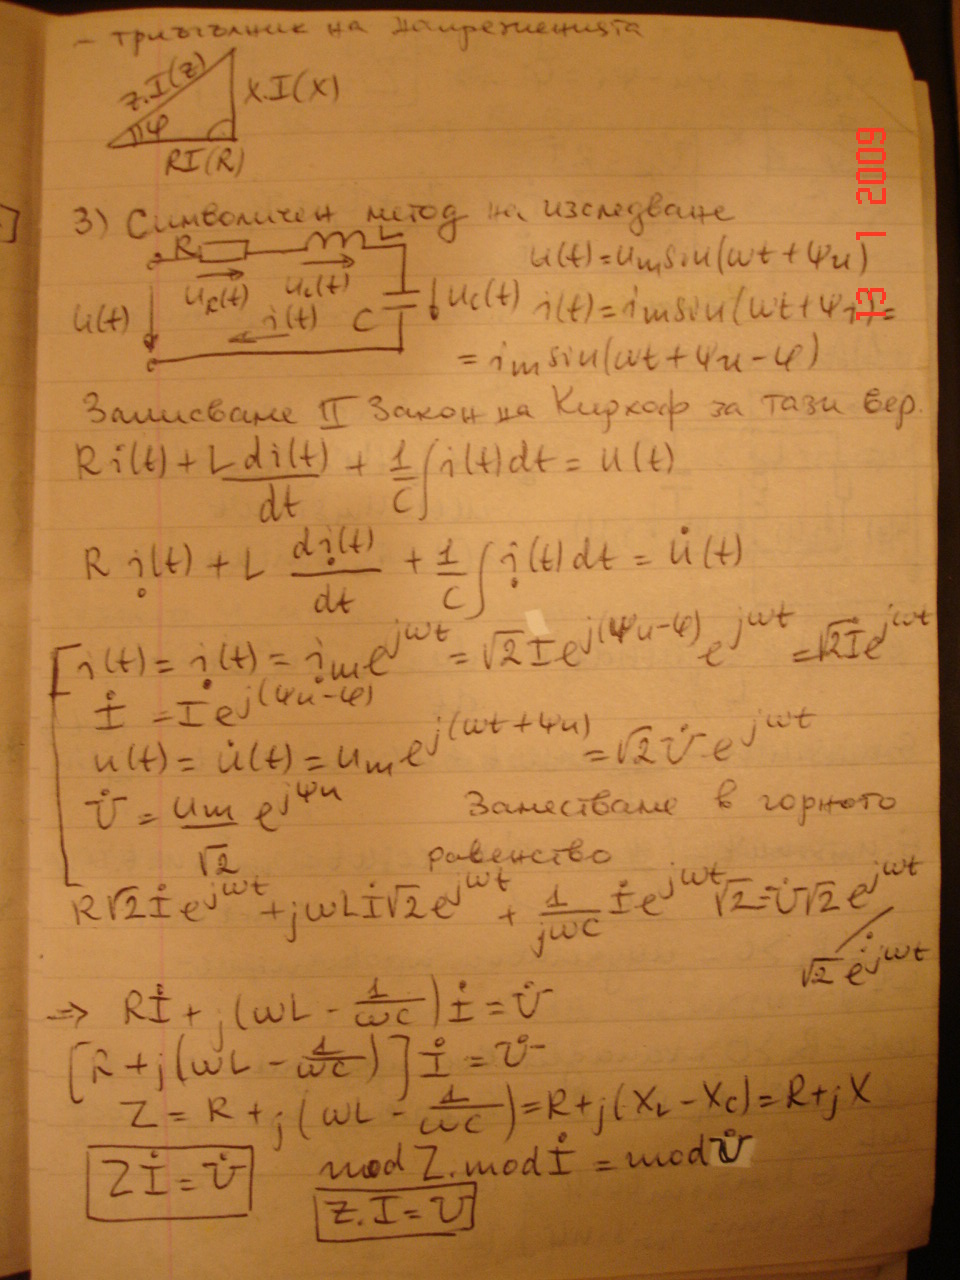 - триъгълник на напреженията
z.I(z)
X.I(X)
φ
RI(R)
13 1 2009
3) Символичен метод на изследване
R L
u(t) = umsin(ωt + Ψu)
uR(t) uL(t)
uc(t)
u(t)
i(t) C
i(t) = imsin(ωt + Ψi) =
= imsin(ωt + Ψu - φ)
Записваме II Закон на Кирхоф за тази вер.
Ri(t) + L di(t)/dt + 1/C ∫i(t)dt = u(t)
R i̇(t) + L di̇(t)/dt + 1/C ∫i̇(t)dt = u̇(t)
i(t) = i̇(t) = i̇m e^jωt = √2 I e^j(Ψu-φ) e^jωt = √2 İ e^jωt
İ = I e^j(Ψu-φ)
u(t) = u̇(t) = um e^j(ωt + Ψu) = √2 U̇ e^jωt
U̇ = um/√2 e^jΨu
Заместваме в горното
равенство
R√2 İ e^jωt + jωLİ√2 e^jωt + 1/jωC İ e^jωt √2 = U̇√2 e^jωt
/ √2 e^jωt
=> Rİ + j(ωL - 1/ωC) İ = U̇
[R + j(ωL - 1/ωC)] İ = U̇
Z = R + j(ωL - 1/ωC) = R + j(XL - XC) = R + jX
Zİ = U̇
mod Z. mod İ = mod U̇
z. I = U